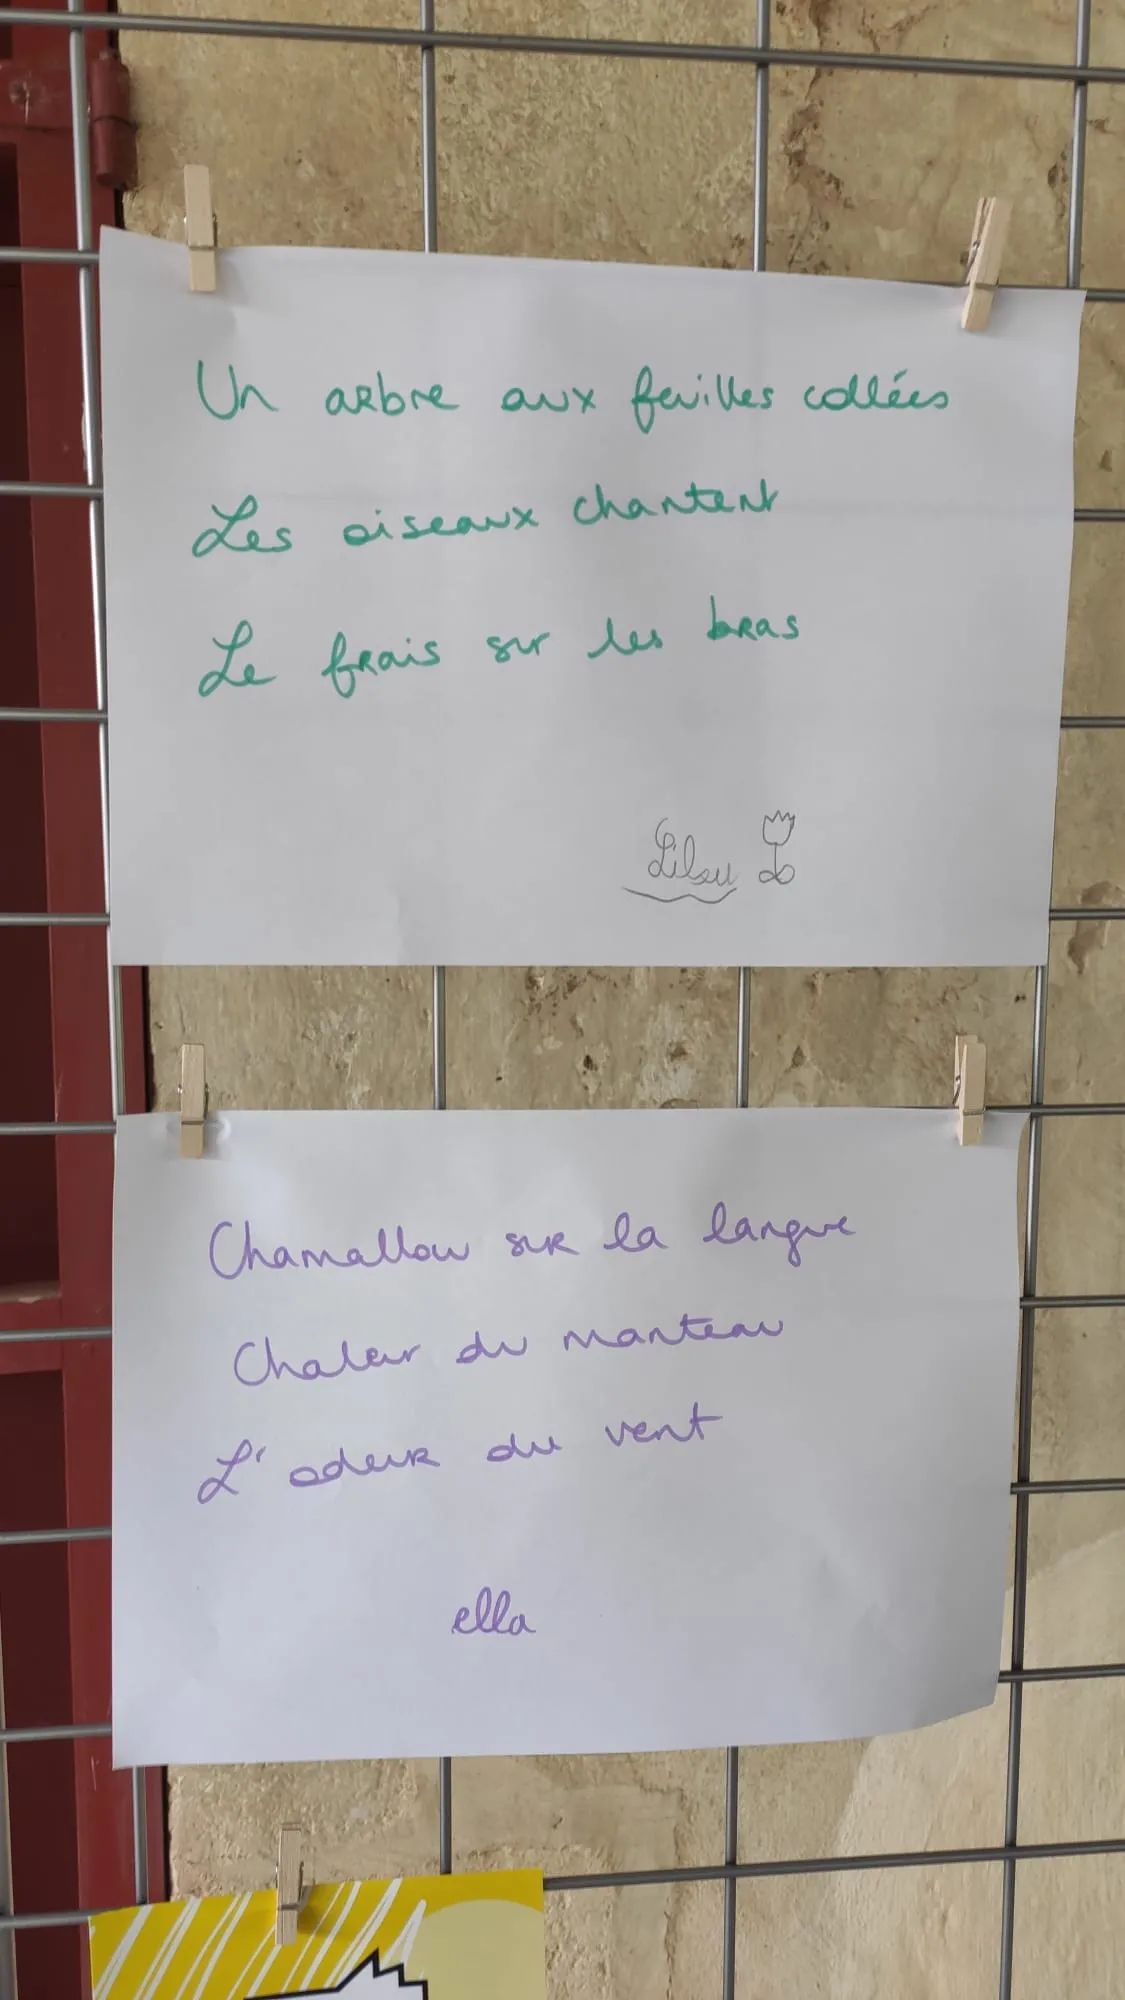 Un arbre aux feuilles collées
Les oiseaux chantent
Le frais sur les bras
Lilou
Chamallow sur la langue
Chaleur du manteau
L'odeur du vent
ella